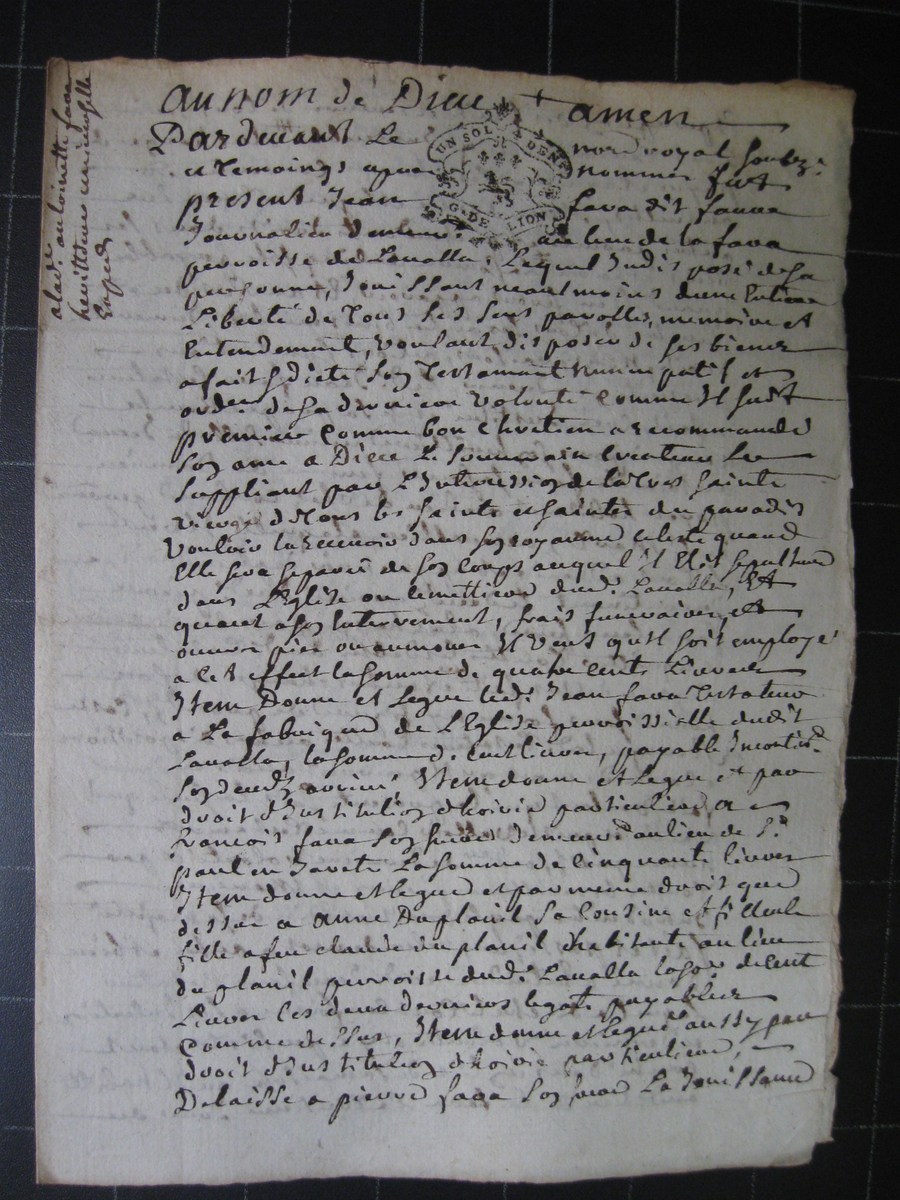 a lad.e antoinette fava
heritiere universelle
Exped.
au nom de Dieu + amen
UN SOL DEN
G. DE LION
Pardevant Le no.re royal soubz.e
et temoings apres nommes fut
present Jean fava dit fauua
Journalier demeur.t au lieu de la fava
perroisse de Lavalla, Lequel Indisposé de sa
personne, Jouissant neantmoins d'une Entiere
Liberté de tous ses sens parolles, memoire et
Entendement, voulant disposer de ses biens
a fait & dicté son testament nuncupatif et
ord.ce de sa derniere volonté comme Il suit
premier comme bon chretien a Recommandé
son ame a Dieu Le souverain Createur Le
suppliant par L'Intercession de la tres sainte
vierge & tous les saints et saintes du paradis
vouloir la Recevoir dans son royaume celeste quand
Elle sera separée de son corps auquel Il Elit sepulture
dans L'Eglise ou cemettiere dud.t Lavalla, Et
quant a son Enterrement, frais funeraires, et
œuvre pies ou aumone Il veut qu'Il soit employé
a cet effect la somme de quatre cents Livres
Item Donne et Legue led.t Jean fava Testateur
a La fabrique de L'Eglise perroissielle dudit
Lavalla, la somme de cent livres, payable Incontin.t
son deceds arrivé, Item donne et Legue et par
droit d'Institution d'hoirie particuliere a
françois fava son frere demeur.t au lieu de S.t
paul en Jarete La somme de cinquante livres
Item donne et legue et par meme droit que
dessus a anne Duplanil sa Cousine et filleule
fille a feu claude du planil & habitante au lieu
du planil perroisse dud.t Lavalla la so.e de cent
Livres les deux derniers legats payables
comme dessus, Item donne et legue aussy par
droit d'Institution d'hoirie particuliere,
Delaisse a pierre fava son frere La Jouissance